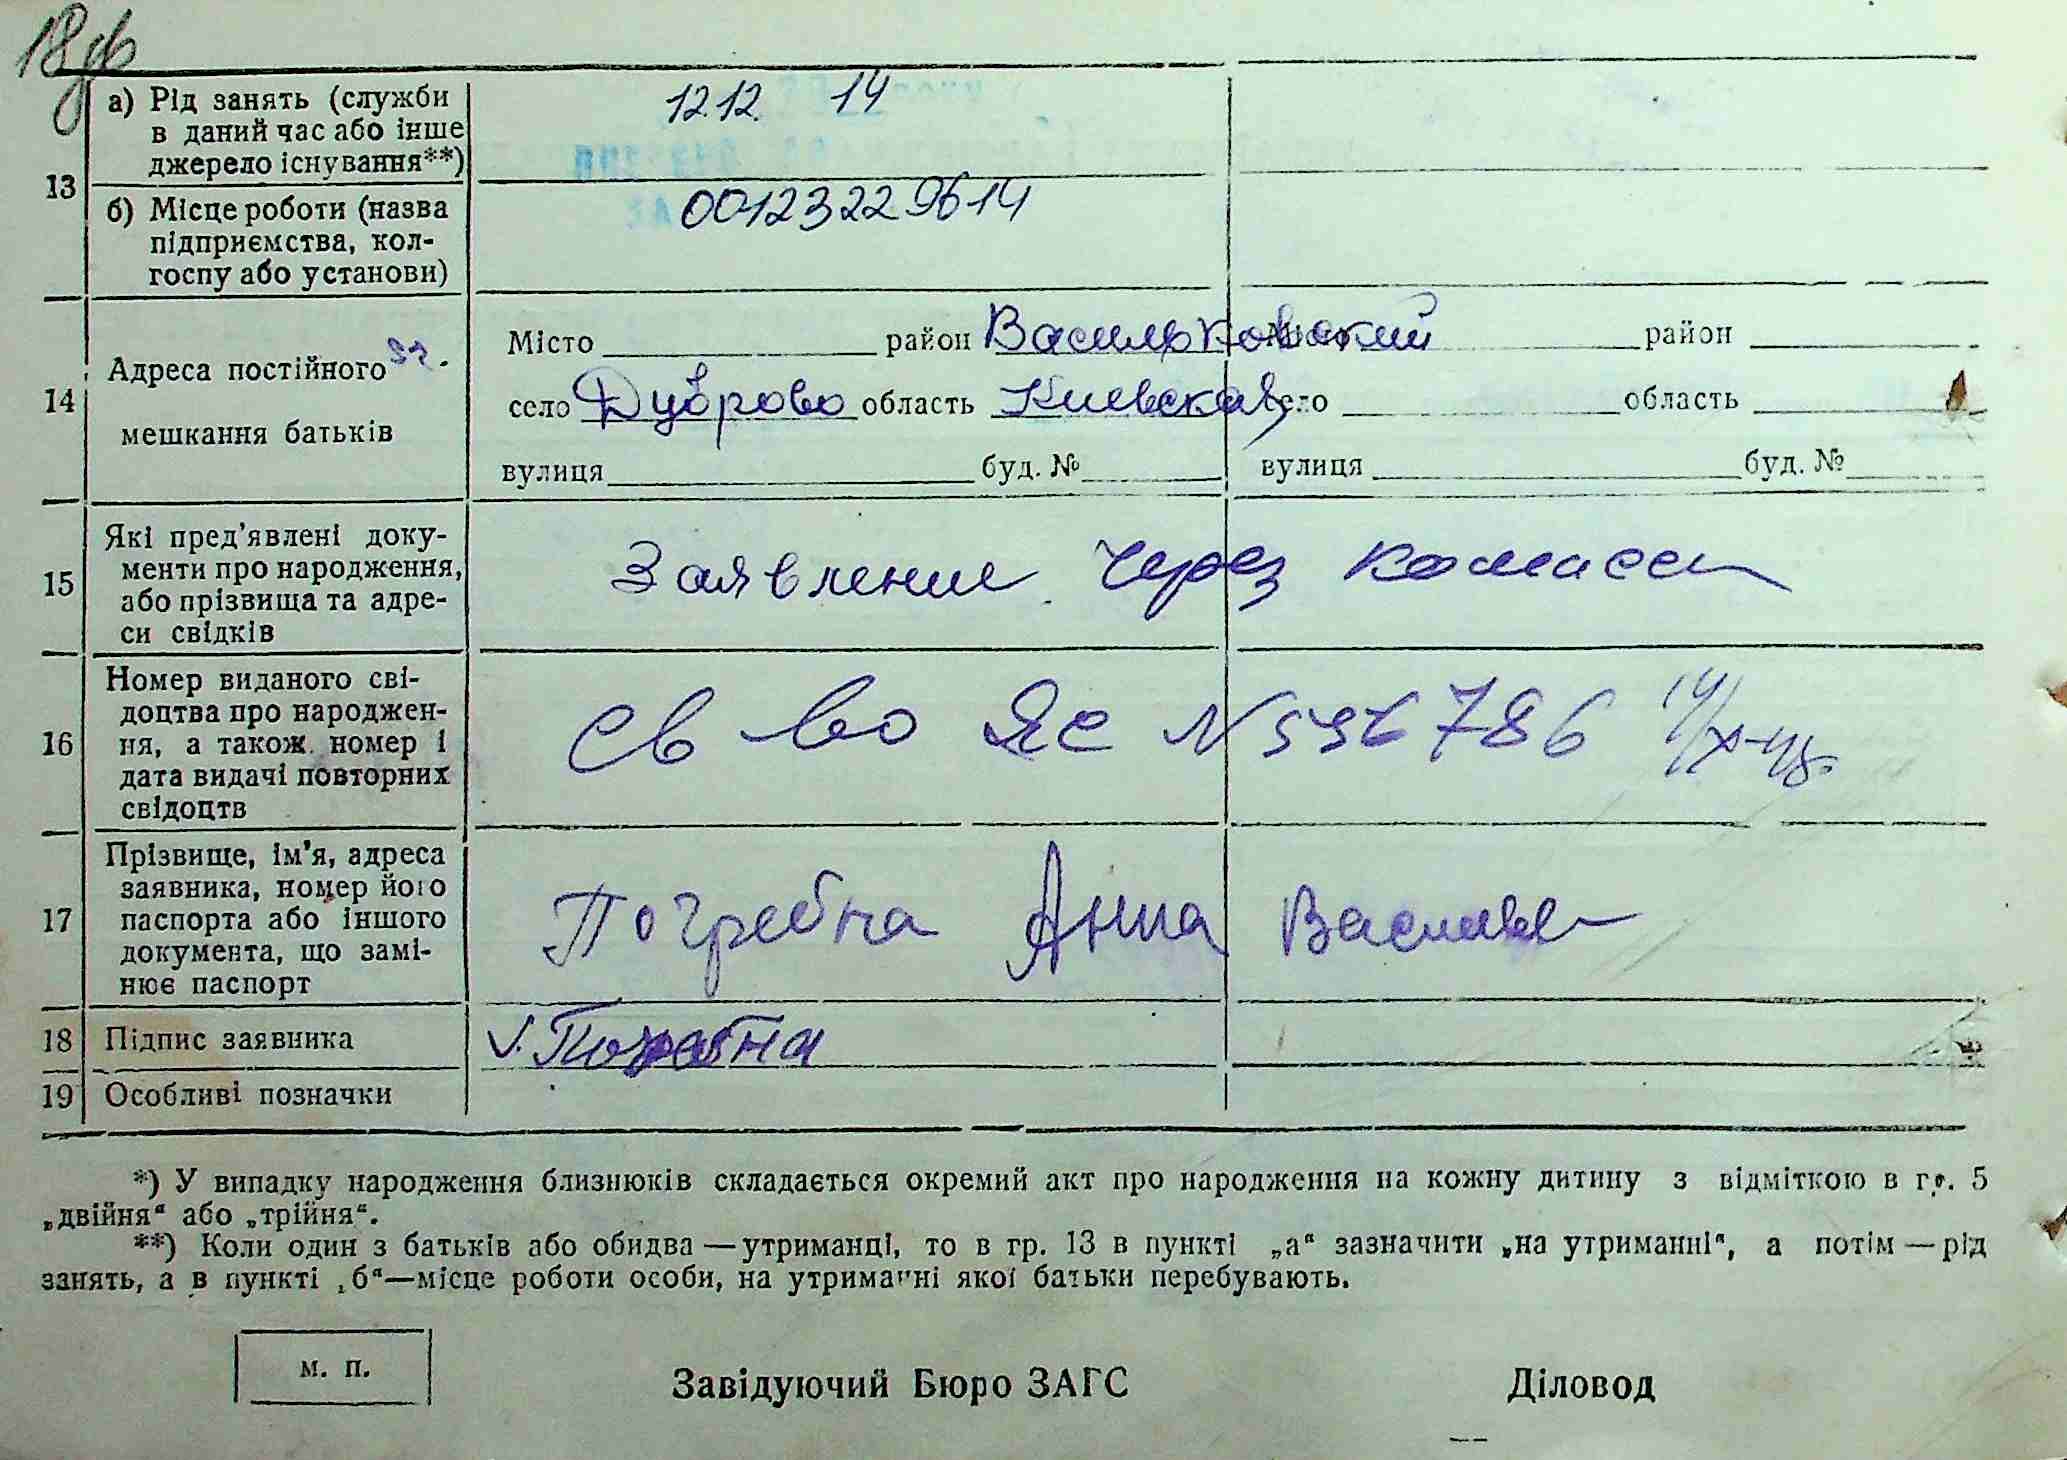 а) Рід занять (служби
в даний час або інше
джерело існування**)
12.12. 14
13
б) Місце роботи (назва
підприємства, кол-
госпу або установи)
00123229614
14
Адреса постійного
мешкання батьків
Місто район Васильковский район
село Дуброво область Киевская село область
вулиця буд. № вулиця буд. №
15
Які пред’явлені доку-
менти про народження,
або прізвища та адре-
си свідків
Заявление через
16
Номер виданого сві-
доцтва про народжен-
ня, а також номер і
дата видачі повторних
свідоцтв
Св во ЯС N 596786
17
Прізвище, ім’я, адреса
заявника, номер його
паспорта або іншого
документа, що замі-
нює паспорт
Погребна Анна
18 Підпис заявника Погребна
19 Особливі позначки
*) У випадку народження близнюків складається окремий акт про народження на кожну дитину з відміткою в гр. 5
„двійня“ або „трійня“.
**) Коли один з батьків або обидва — утриманці, то в гр. 13 в пункті „а“ зазначити „на утриманні“, а потім — рід
занять, а в пункті „б“—місце роботи особи, на утриманні якої батьки перебувають.
м. п.
Завідуючий Бюро ЗАГС Діловод